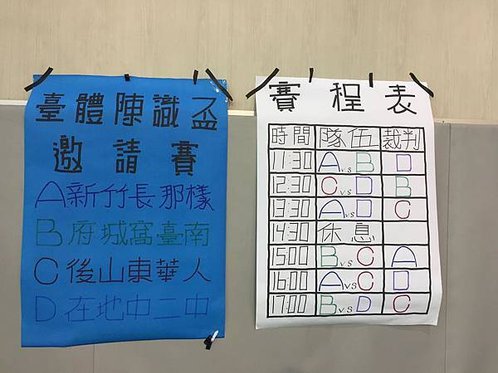 臺體陳識盃
邀請賽
A新竹長那樣
B府城窩臺南
C後山東華人
D在地中二中
賽程表
時間 隊伍 裁判
11:30 A vs B D
12:30 C vs D B
13:30 A vs D C
14:30 休息
15:00 B vs C A
16:00 A vs C D
17:00 B vs D C